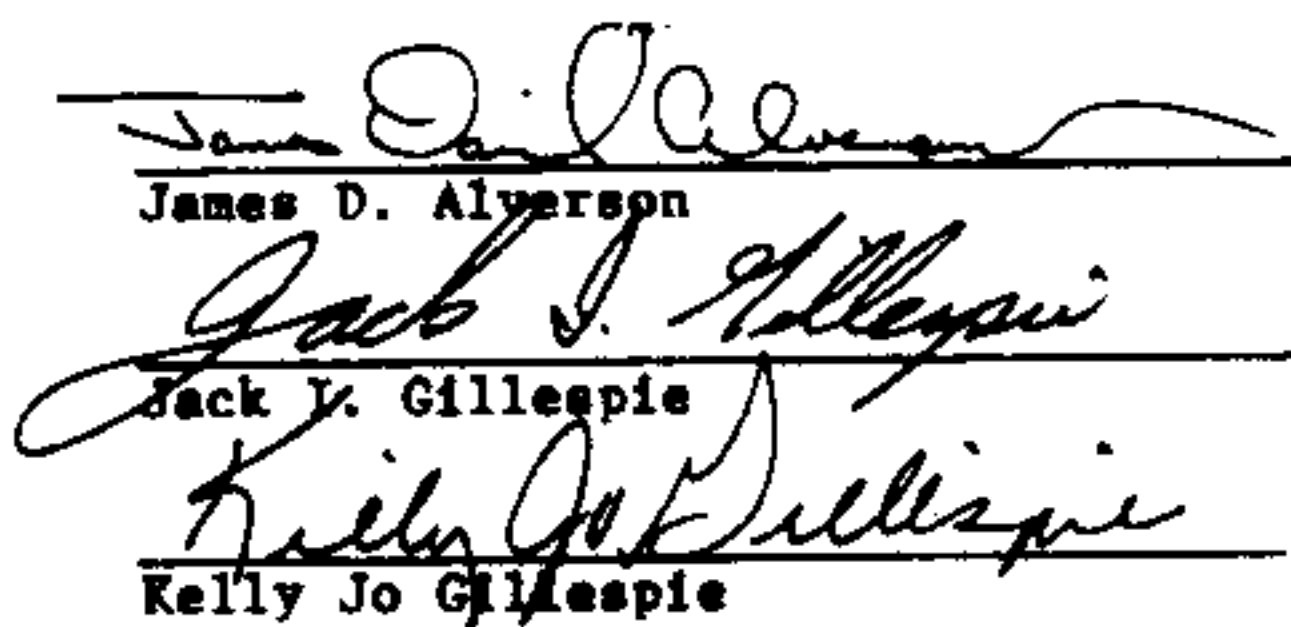 James David Alverson
James D. Alverson
Jack I. Gillespie
Jack I. Gillespie
Kelly Jo Gillespie
Kelly Jo Gillespie